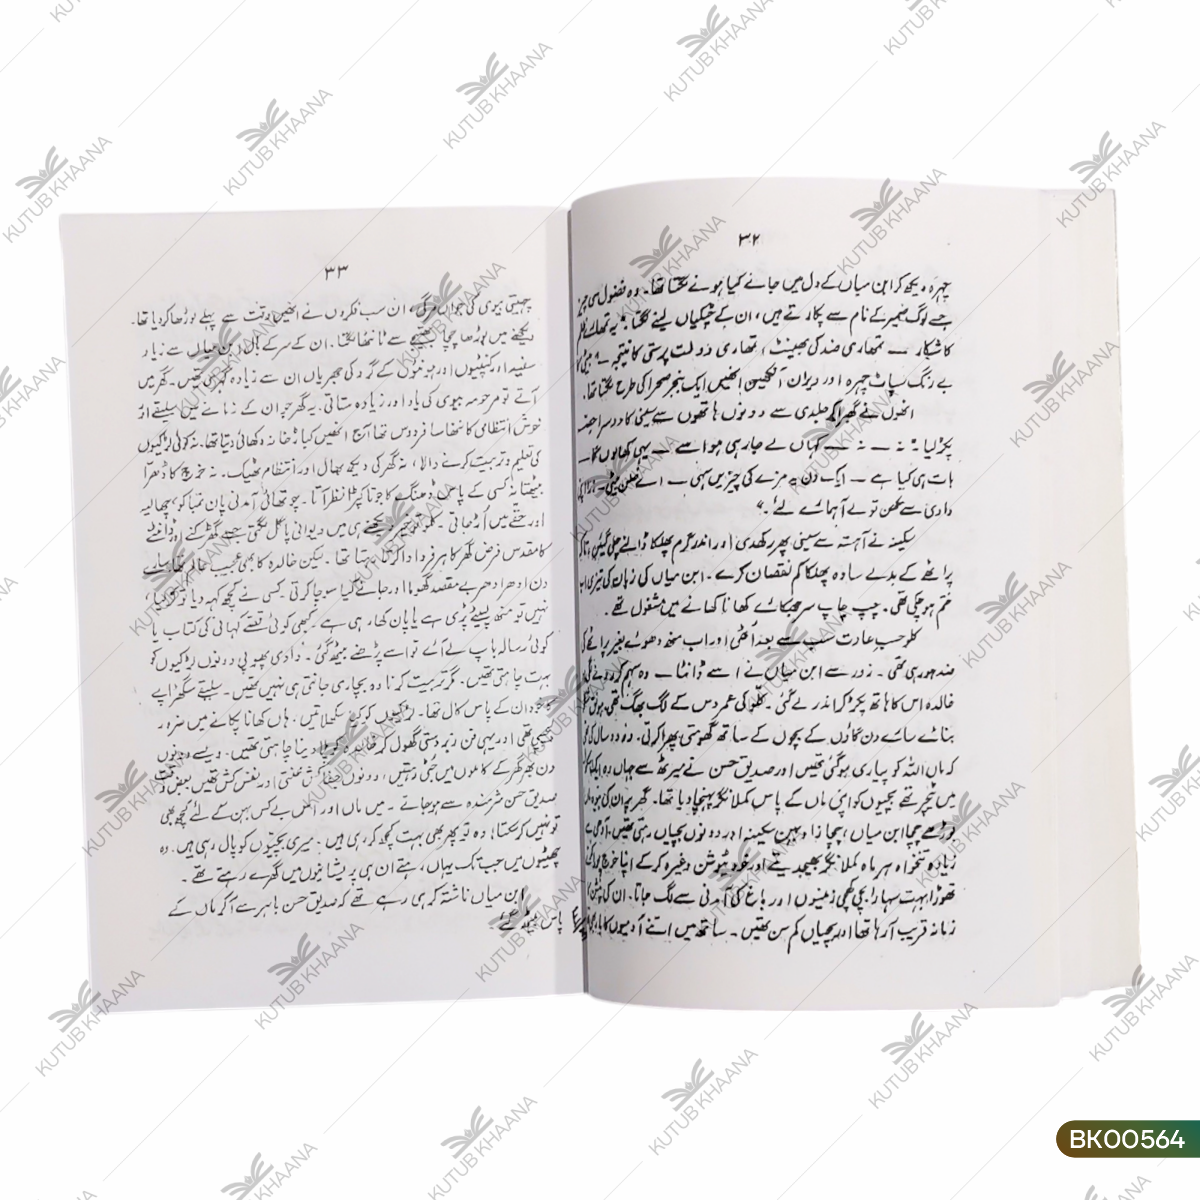 ۳۲
چہرہ دیکھ کر ابن میاں کے دل میں جانے کیا ہونے لگتا تھا۔ وہ فضول سی چیز
جسے لوگ ضمیر کے نام سے پکارتے ہیں، ان کے چٹکیاں لینے لگتا۔ یہ تمھارے ظلم
کا شکار — تمھاری ضد کی بھینٹ، تمھاری دولت پرستی کا نتیجہ۔ بیٹی کا
بے رنگ سپاٹ چہرہ اور ویران آنکھیں انھیں ایک بنجر صحرا کی طرح لگتا تھا۔
انھوں نے گھبرا کر جلدی سے دونوں ہاتھوں سے سینی کا دوسرا حصہ
پکڑ لیا۔ نہ — نہ — کہاں لے جا رہی ہو اسے — یہی کھالوں گا —
بات ہی کیا ہے — ایک دن بے مزے کی چیزیں سہی — اے
دادی سے مکھن تو لے آ ہمارے لئے۔"
سکینہ نے آہستہ سے سینی پھر رکھدی اور اندر گرم پھلکا ڈالنے چلی گئیں، تاکہ
پراٹھے کے بدلے سادہ پھلکا کم نقصان کرے۔ ابن میاں کی زبان کی تیزی اب
ختم ہو چکی تھی۔ چپ چاپ سر جھکائے کھانا کھانے میں مشغول تھے۔
کلو حسب عادت سب سے بعد اٹھی اور اب منھ دھوئے بغیر پراٹھے کی
ضد ہو رہی تھی۔ زور سے ابن میاں نے اسے ڈانٹا — وہ سہم کر رونے لگی
خالدہ اس کا ہاتھ پکڑ کر اندر لے گئی۔ کلو کی عمر دس کے لگ بھگ تھی، ہونق
بنائے سارے دن گاؤں کے بچوں کے ساتھ گھومتی پھرا کرتی۔ وہ دو سال کی تھی
کہ ماں اللہ کو پیاری ہو گئی تھیں اور صدیق حسن نے میرٹھ سے جہاں وہ ایک
میں ٹیچر تھے بچیوں کو اپنی ماں کے پاس کملا نگر پہنچا دیا تھا۔ گھر پر ان کی بیوہ ماں
بوڑھے چچا ابن میاں، چچا زاد بہن سکینہ اور دونوں بچیاں رہتی تھیں، آدھی سے
زیادہ تنخواہ ہر ماہ کملا نگر بھیجدیتے اور خود ٹیوشن وغیرہ کر کے اپنا خرچ
تھوڑا بہت سہارا بچی کھچی زمینوں اور باغ کی آمدنی سے لگ جاتا۔ ان کی پنشن کا
زمانہ قریب آ رہا تھا اور بچیاں کم سن تھیں۔ ساتھ میں اتنے آدمیوں کا بار،
۳۳
چہیتی بیوی کی جواں مرگی، ان سب فکروں نے انھیں وقت سے پہلے بوڑھا کر دیا تھا۔
دیکھنے میں بوڑھا چچا بھتیجے سے ٹانٹھا لگتا۔ ان کے سر کے بال ابن میاں سے زیادہ
سفید اور کنپٹیوں اور ہونٹوں کے گرد کی جھریاں ان سے زیادہ گہری تھیں۔ گھر میں
آتے تو مرحومہ بیوی کی یاد اور زیادہ ستاتی۔ یہ گھر جو ان کے زمانے میں سلیقے اور
خوش انتظامی کا ننھا سا فردوس تھا آج انھیں کباڑ خانہ دکھائی دیتا تھا۔ نہ کوئی لڑکیوں
کی تعلیم و تربیت کرنے والا، نہ گھر کی دیکھ بھال اور انتظام ٹھیک۔ نہ خرچ کا دھڑا
بیٹھتا نہ کسی کے پاس ڈھنگ کا جوتا کپڑا نظر آتا۔ چوتھائی آمدنی پان تمباکو، چھالیہ
اور حقے میں اُڑ جاتی۔ کلو تو خیر دیکھنے ہی میں دیوانی پاگل لگتی جسے گھڑکنے اور ڈانٹنے
کا مقدس فرض گھر کا ہر فرد ادا کرتا رہتا تھا۔ لیکن خالدہ کا بھی عجیب عالم تھا سارے
دن ادھر ادھر بے مقصد گھومنا اور جانے کیا سوچا کرتی۔ کسی نے کچھ کہہ دیا تو کر دیا،
نہیں تو منھ لپیٹے پڑی ہے یا پان کھا رہی ہے۔ کبھی کوئی قصے کہانی کی کتاب یا
کوئی رسالہ باپ لے آئے تو اسے پڑھنے بیٹھ گئی۔ دادی پھوپی دونوں لڑکیوں کو
بہت چاہتی تھیں۔ مگر تربیت کرنا وہ بچاری جانتی ہی نہیں تھیں۔ سلیقے سگھڑاپے
کا خود ان کے پاس کال تھا۔ لڑکیوں کو کیا سکھلاتیں۔ ہاں کھانا پکانے میں ضرور
اچھی تھی اور یہی فن زبردستی گھول کر خالدہ کو پلا دینا چاہتی تھیں۔ ویسے دونوں
دن بھر گھر کے کاموں میں جٹی رہتیں، دونوں جفاکش محنتی اور نفس کش تھیں بعض وقت
صدیق حسن شرمندہ سے ہو جاتے۔ میں ماں اور اس بے کس بہن کے لئے کچھ بھی
تو نہیں کر سکتا، وہ تو پھر بھی بہت کچھ کر رہی ہیں۔ میری بچیوں کو پال رہی ہیں۔ وہ
چھٹیوں میں جب تک یہاں رہتے ان ہی پریشانیوں میں گھرے رہتے تھے۔
ابن میاں ناشتہ کر ہی رہے تھے کہ صدیق حسن باہر سے آ کر ماں کے
پاس بیٹھ گئے
KUTUB KHAANA
BK00564